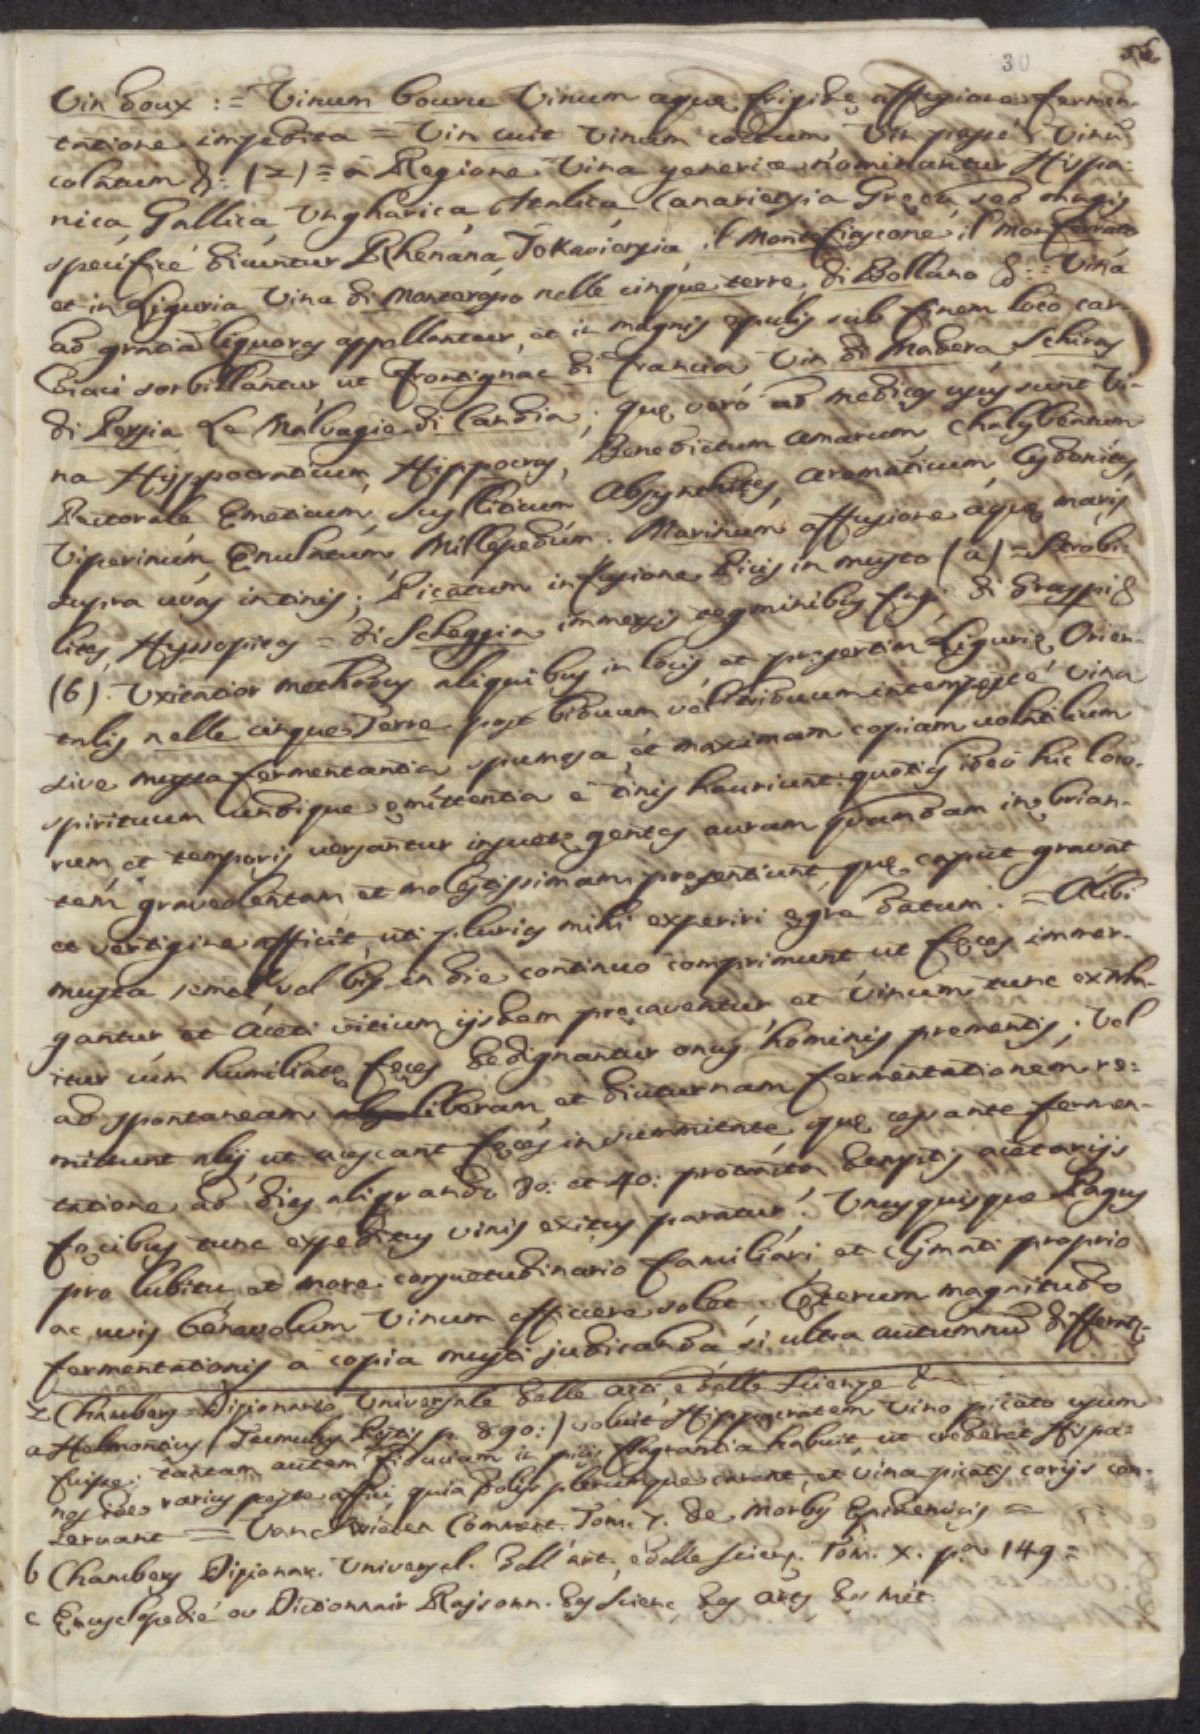 30 56.
Vin doux := Vinum bourru Vinum aquę frigidę affusione fermen-
tatione impedita = Vin cuit Vinum coctum, Vin passé Vinũ
colatum &: (z) = à Regione Vina generice nominantur Hispa-
nica, Gallica, Ungharica, Italica, Canariensia Gręca, sed magis
specificè dicuntur Rhenana, Tokaviensia, il Montefiascone, il Monferrato
et in Liguria Vina di Monterosso nelle cinque terre, di Bollano &:: Vina
ad gratiã liquores appellantur, et in magnis epulis sub finem loco
sorbillantur, ut Frontignac di Francia Vin di Madera Schiras
di Persia Le Malvagie di Candia; quę verò ad medicos usus sunt Vi-
na Hyppocraticum, Hippocras, Benedictum amarum, Chalybeatum
Pectorale Emeticum, Absynthites, aromaticum, Cydonites,
Viperinum, Enulatum, Millepedum. Marinum affusione aquę maris
supra uvas in tinis; Picatum infusione Picis in musto (a) = Strobi-
lites, Hyssopites = di Scheggia immersis segminibus fagi di Graspi &
(6). Usitatior methodus aliquibus in locis, et pręsertim Ligurię Orien-
talis nelle cinque Terre post biduum vel triduum intempestè vina
sive musta fermentantia spumosa, et maximam copiam volatilium
spirituum undique emittentia è tinis hauriunt: quoties ideò hic loco-
rum et temporis versantur insuetę gentes auram quamdam inebrian-
tem graveolentem et molestissimam pręsentiunt, quę caput gravat
et vertigine afficit, uti pluries mihi experiri ęgrè datum. = Alibi
musta semel vel bis in die continuo comprimunt ut fęces immer-
gantur et Aceti vitium ijsdem pręcaventur, et Vinum tunc extrahi-
tur cùm humiliatę fęces dedignantur onus hominis prementis; Vel
ad spontaneam liberam, et diuturnam fermentationem re-
mittunt alij ut acescant fęces in summitate, quę cessante fermen-
tatione ad dies aliquando 30: et 40: protracta demptis acetariis
fęcibus tunc expeditus vinis exitus paratur. Unusquisque Pagus
pro lubitu et more consuetudinario familiari, et clymati proprio
ac uvis benevolum Vinum efficere solet. Cęterum magnitudo
fermentationis à copia musti judicanda si ultra autumnũ
z Chambers Dizionario Universale delle arti e delle Scienze &
a Helmontius (Tumulus Pestis p. 890:) voluit Hippocratem vino picato usum
fuisse: tantam autem fiduciam in picis flagrantia habuit, ut crederet Hispa-
nos ideo rarius peste affici, quia Dolijs plerumque carent, et vina picatis corijs con-
servant = Van Swieten Comment. Tom. 7. de Morbis Epidemicis =
b Chambers Dizionar. Universal. dell'art. e delle Scienz. Tom. X. p.ª 149 =
c Encyclopedié ou Dictionnair Raisonn. des Scienc. des arts des mét.